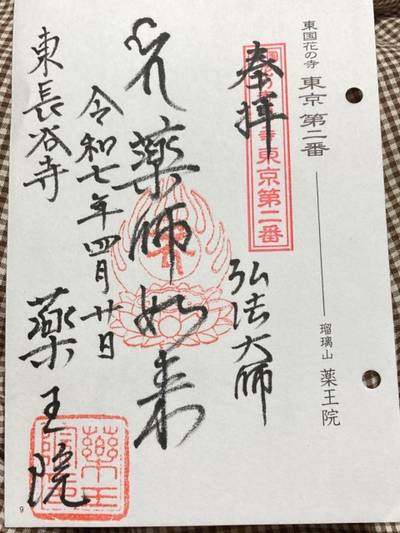 東国花の寺 東京 第二番 瑠璃山 薬王院
奉拝
東京第二番
弘法大師
薬師如来
令和七年四月廿日
東長谷寺
薬王院
薬王
9